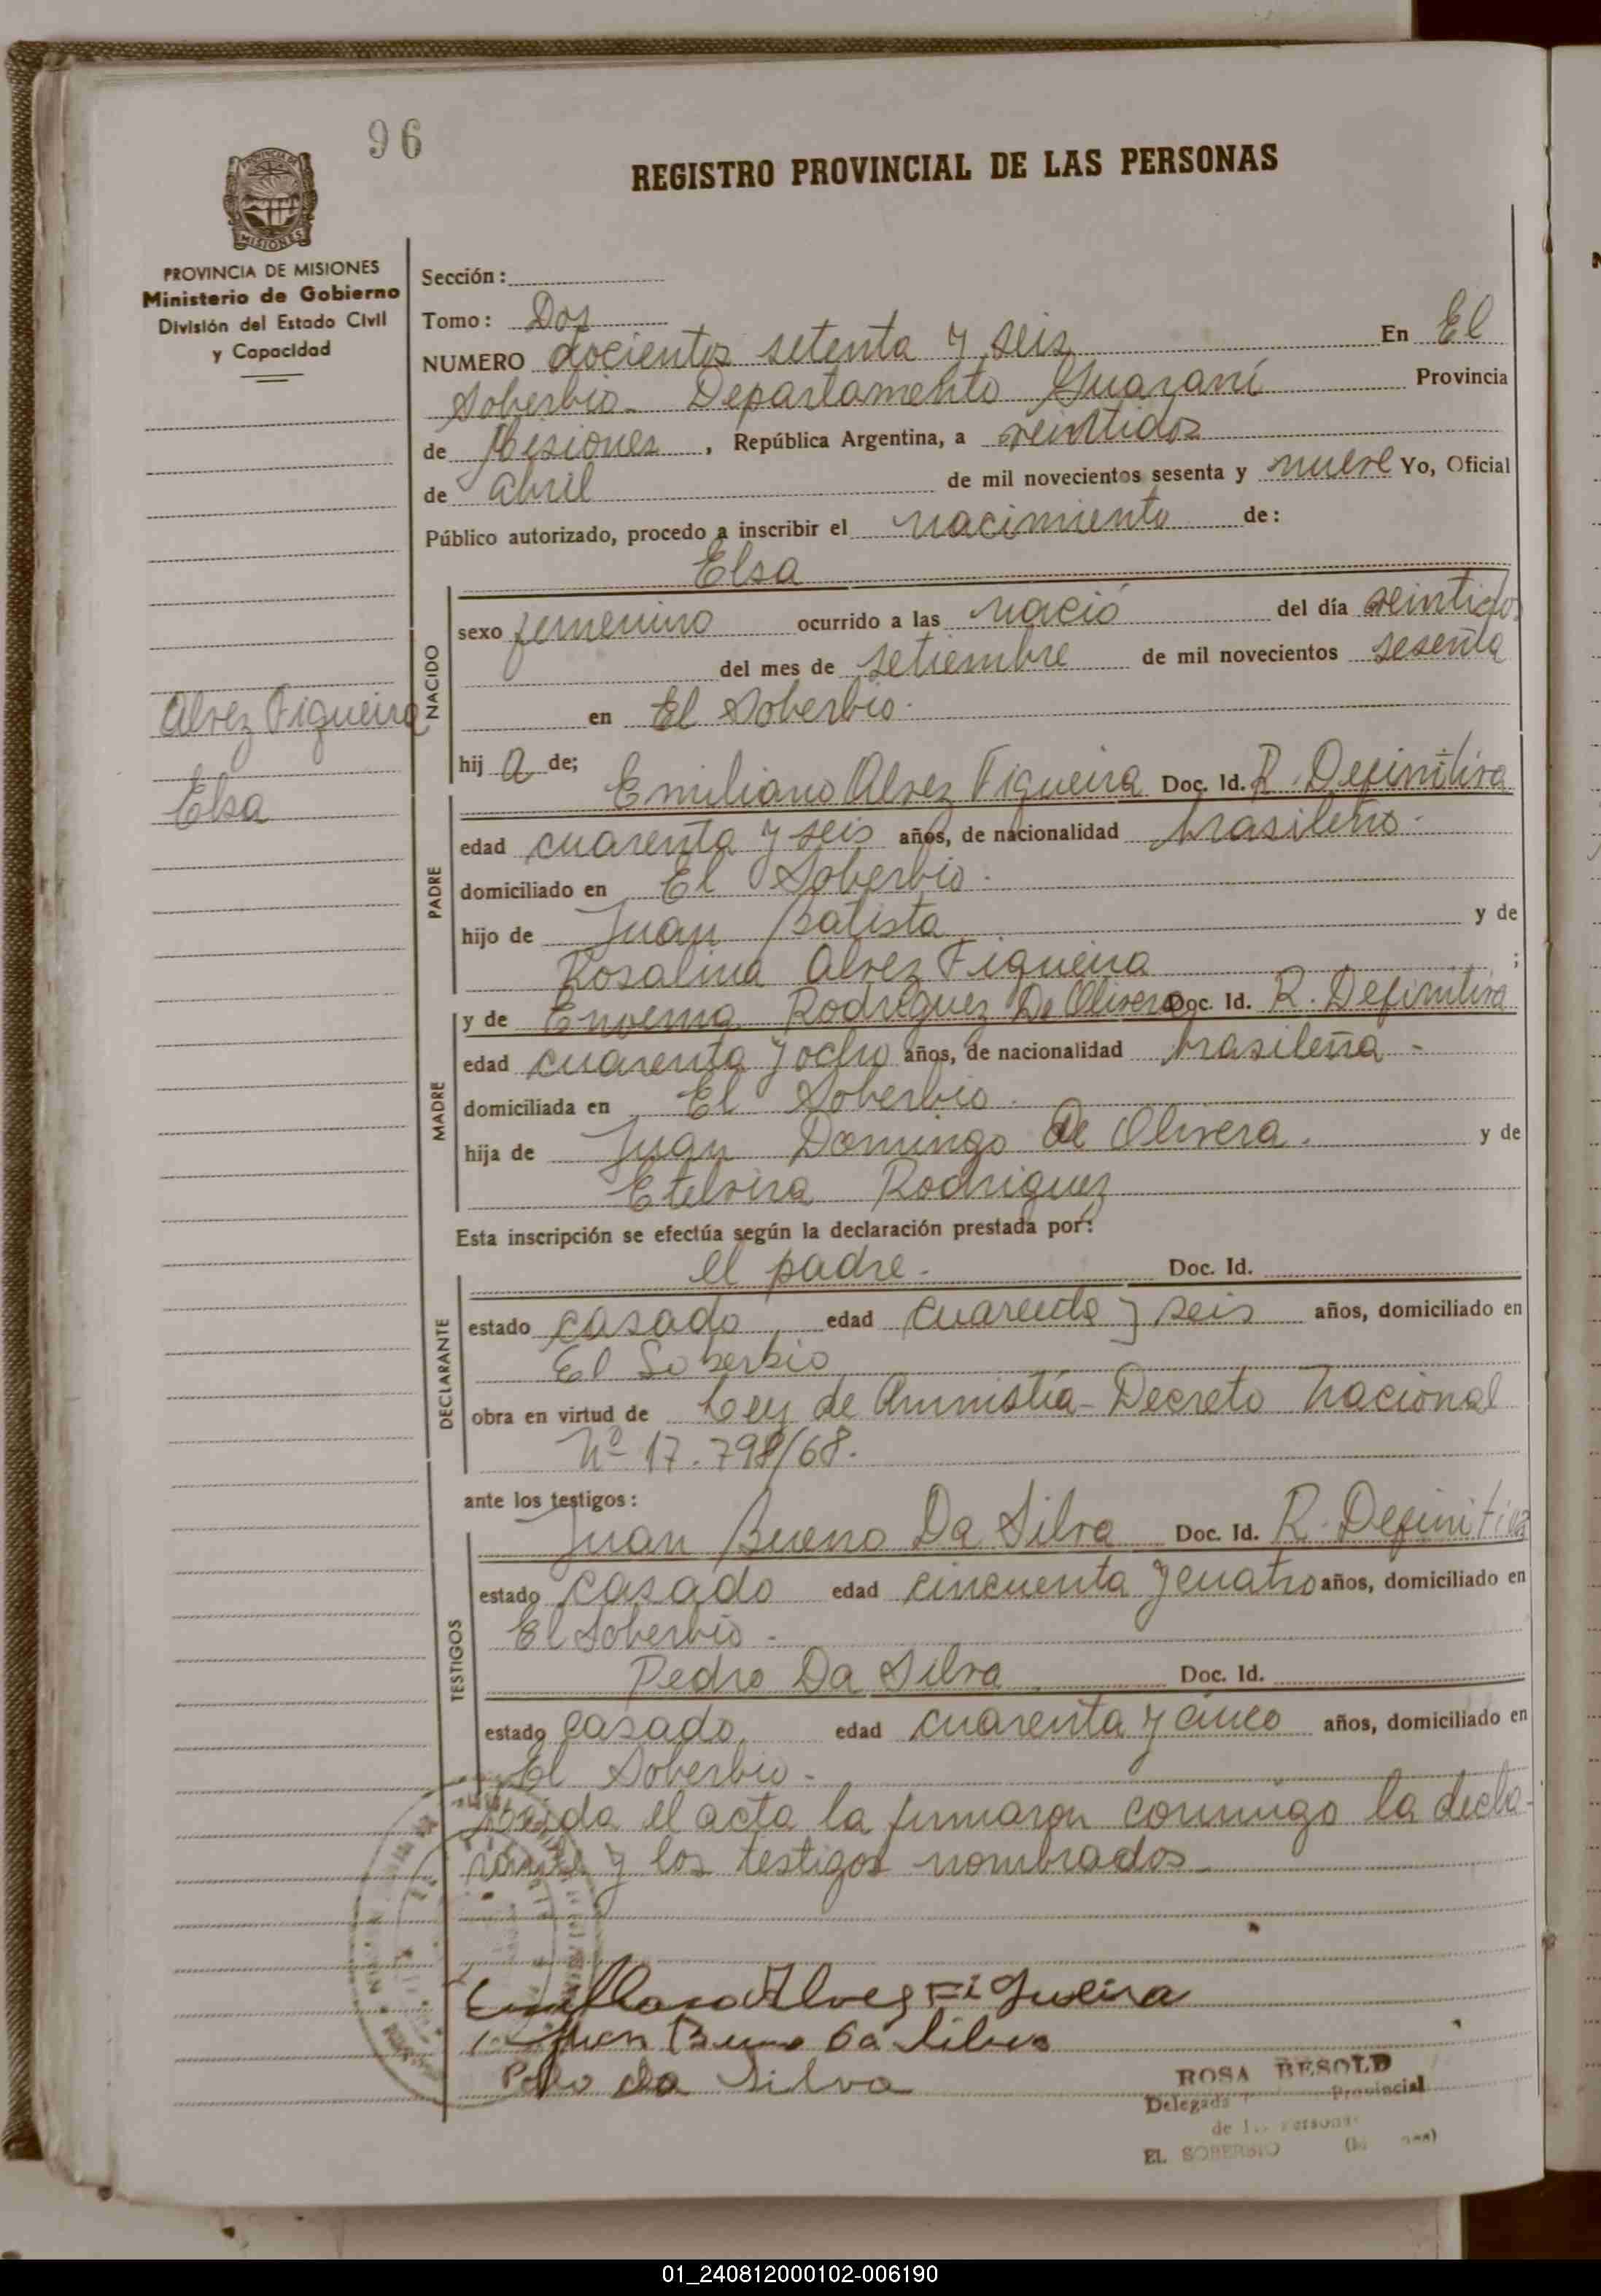 96
REGISTRO PROVINCIAL DE LAS PERSONAS
PROVINCIA DE MISIONES
MISIONES
PROVINCIA DE MISIONES
Ministerio de Gobierno
División del Estado Civil
y Capacidad
Alvez Figueira
Elsa
Sección:
Tomo: Dos
NUMERO docientos setenta y seis En El
Soberbio. Departamento Guaraní Provincia
de Misiones, República Argentina, a veintidos
de abril de mil novecientos sesenta y nueve Yo, Oficial
Público autorizado, procedo a inscribir el nacimiento de:
Elsa
NACIDO
sexo femenino ocurrido a las nació del día veintidos
del mes de setiembre de mil novecientos sesenta
en El Soberbio.
hij a de;
Emiliano Alvez Figueira Doc. Id. R. Definitiva
PADRE
edad cuarenta y seis años, de nacionalidad brasileño.
domiciliado en El Soberbio.
hijo de Juan Batista y de
Rosalina Alvez Figueira ;
y de Rodriguez De Olivera Doc. Id. R. Definitiva
MADRE
edad cuarenta y ocho años, de nacionalidad brasileña -
domiciliada en El Soberbio.
hija de Juan Domingo de Olivera. y de
Etelvira Rodriguez
Esta inscripción se efectúa según la declaración prestada por:
el padre. Doc. Id.
DECLARANTE
estado casado edad cuarenta y seis años, domiciliado en
El Soberbio
obra en virtud de Ley de Amnistía - Decreto Nacional
Nº 17.798/68.
ante los testigos:
Juan Bueno Da Silva Doc. Id. R. Definitiva
TESTIGOS
estado casado edad cincuenta y cuatro años, domiciliado en
El Soberbio.
Pedro Da Silva Doc. Id.
estado casado edad cuarenta y cinco años, domiciliado en
El Soberbio.
Leida el acta la firmaron conmigo la decla-
rante y los testigos nombrados.
Emiliano Alves Figueira
Juan Bueno da Silva
Pedro da Silva
ROSA BESOLD
Delegada Provincial
de las Personas
EL SOBERBIO
01_240812000102-006190